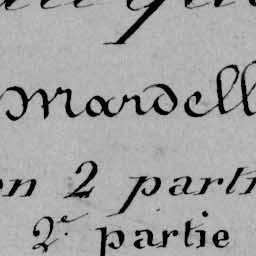 Mardell
en 2 parti
2e partie